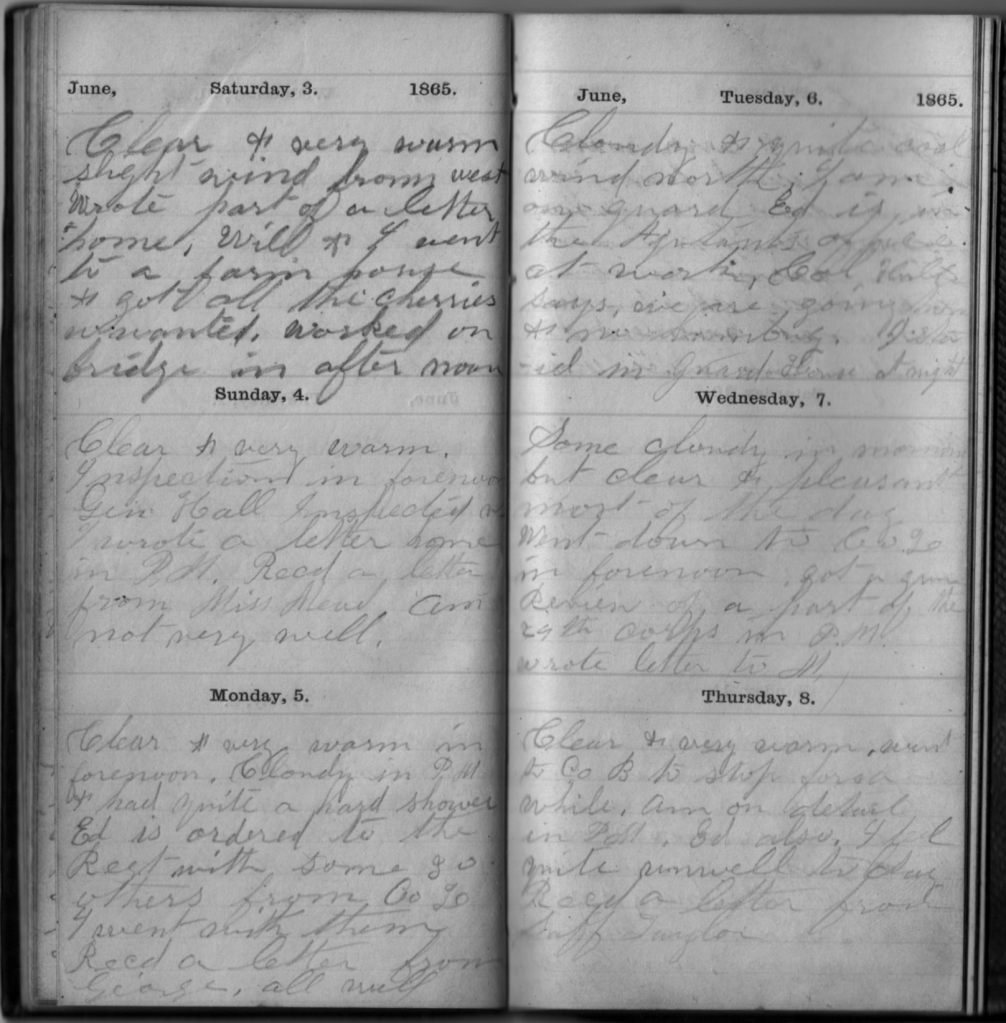 June, Saturday, 3. 1865.
Clear & very warm
slight wind from west
Wrote part of a letter
home, Will & I went
to a farm house
& got all the cherries
we wanted. worked on
bridge in after noon
Sunday, 4.
Clear & very warm.
Inspection in forenoon
Gen Hall Inspected us
I wrote a letter home
in P.M. Recd a letter
from Miss Mead, Am
not very well.
Monday, 5.
Clear & very warm in
forenoon. Cloudy in P.M.
& had quite a hard shower
Ed is ordered to the
Regt with some 30
others from Co G
I went with them
Recd a letter from
George, all well
June, Tuesday, 6. 1865.
Cloudy & quite cool
wind north, I am
on guard Ed is in
the Adjutants office
at work, Col
says, we are going
&
-id in Guard House at night
Wednesday, 7.
Some cloudy in morning
but clear & pleasant
most of the day
Went down to Co G
in forenoon. got a gun
Review of a part of the
24th corps in P.M.
wrote letter to M,
Thursday, 8.
Clear & very warm, went
to Co B to stop for a
while. Am on detail
in P.M. Ed also, I feel
quite unwell to day
Recd a letter from
Taylor